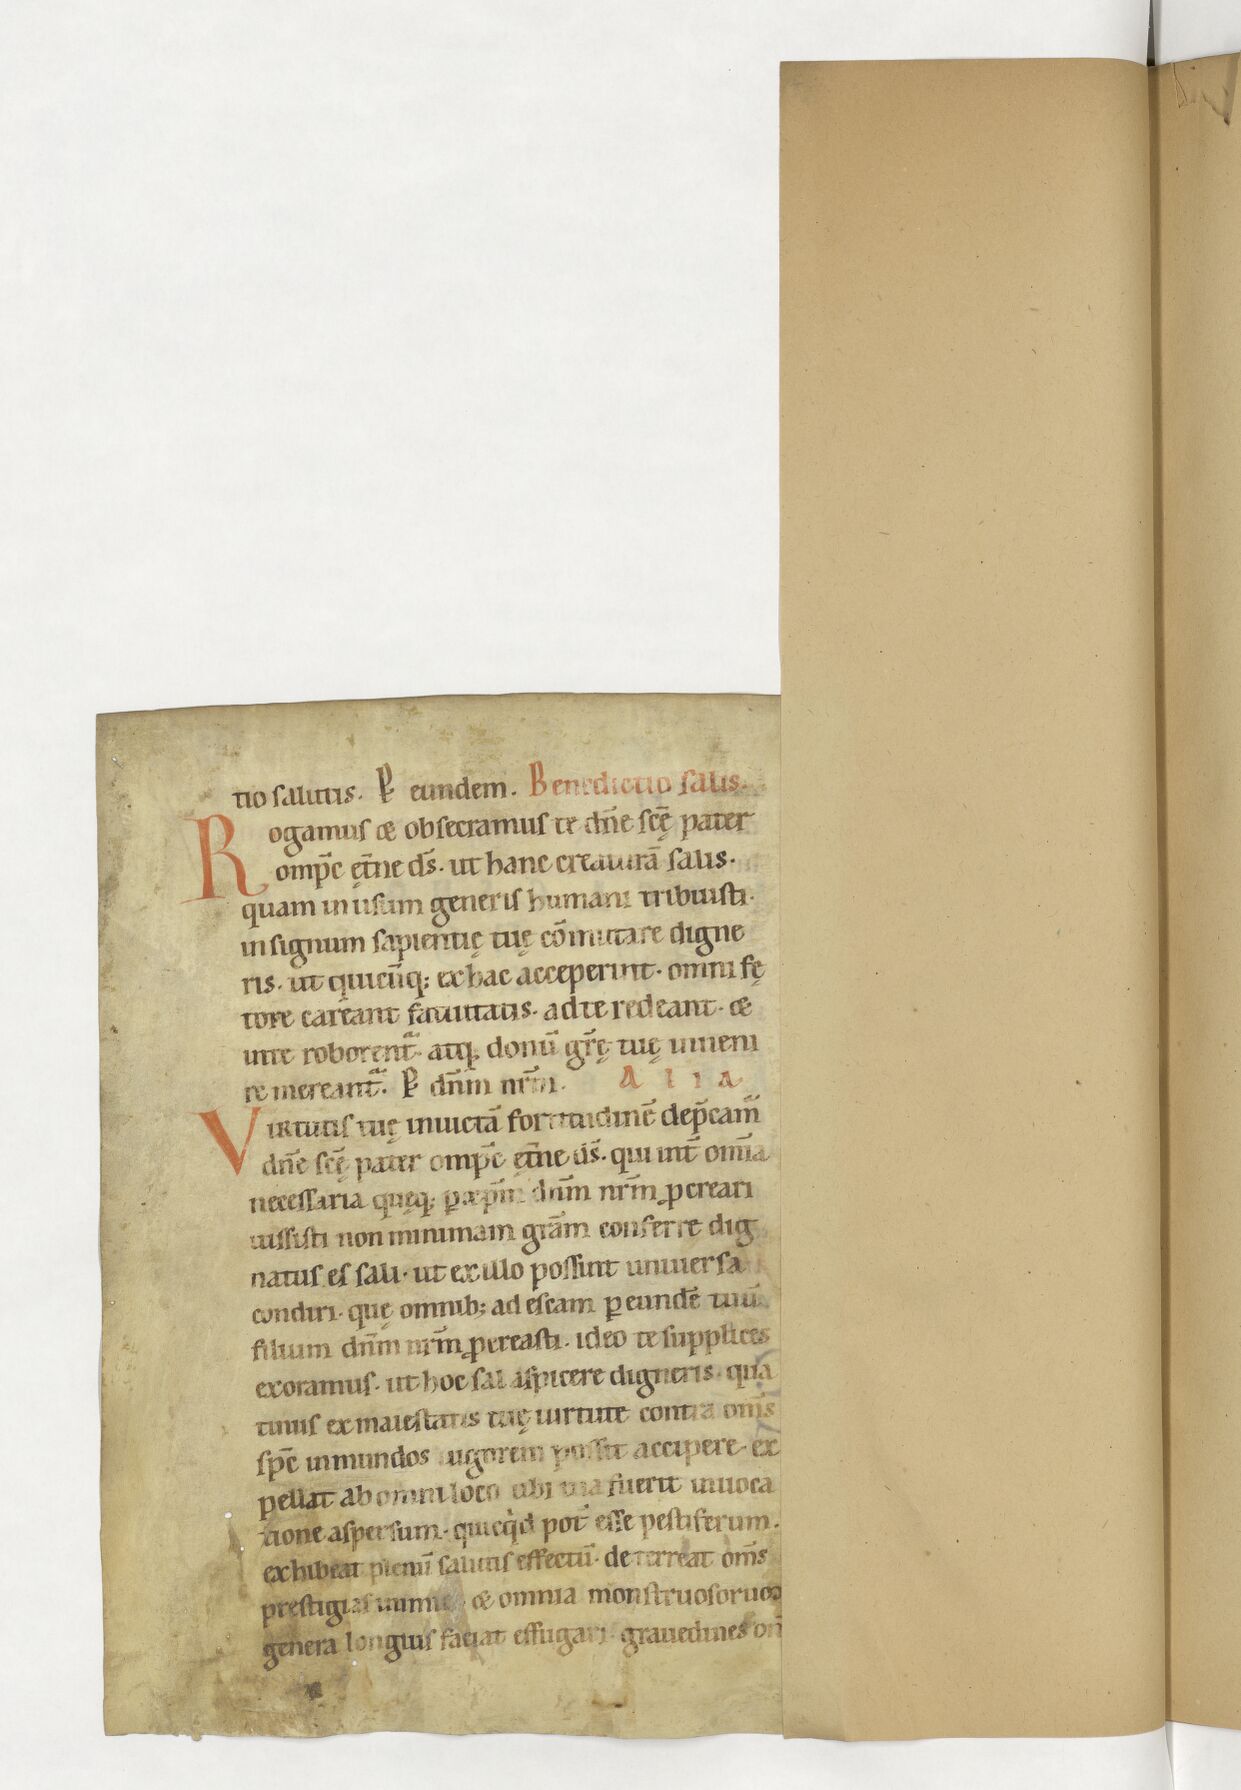 tio salutis. P̲ eundem. Benedictio salis.
Rogamus & obsecramus te dn̄e sc̄ę pater
omp̄c ęt̄ne d̄s. ut hanc creaturā salis.
quam in usum generis humani tribuisti.
in signum sapientię tuę cōmutare digne
ris. ut quicūq; ex hac acceperint. omni fę
tore careant fatuitatis. ad te redeant. &
in te roborent᷑. atq; donū gr̄ę tuę inueni
re mereant᷑. P̲ dn̄m nr̄m. Alia
Virtutis tuę inuictā fortitudinē dep̄cam᷑
dn̄e sc̄ę pater omp̄c ęt̄ne d̄s. qui int̄ om̄a
necessaria quęq; ꝑ xp̄m dn̄m nr̄m ꝓcreari
iussisti non minimam gr̄am conferre dig
natus es sali. ut ex illo possint uniuersa
condiri. quę omnib; ad escam ꝑ eundē tuū
filium dn̄m nr̄m ꝓcreasti. ideo te supplices
exoramus. ut hoc sal aspicere digneris. qua
tinus ex maiestatis tuę uirtute contra om̄s
sp̄c inmundos uigorem possit accipere. ex
pellat ab omni loco ubi tua fuerit inuoca
tione aspersum. quicq̇d pot̄ esse pestiferum.
exhibeat plenū salutis effectū. deterreat om̄s
prestigias & omnia monstruosoruꝫ
genera longius faciat effugari. grauedines om̄